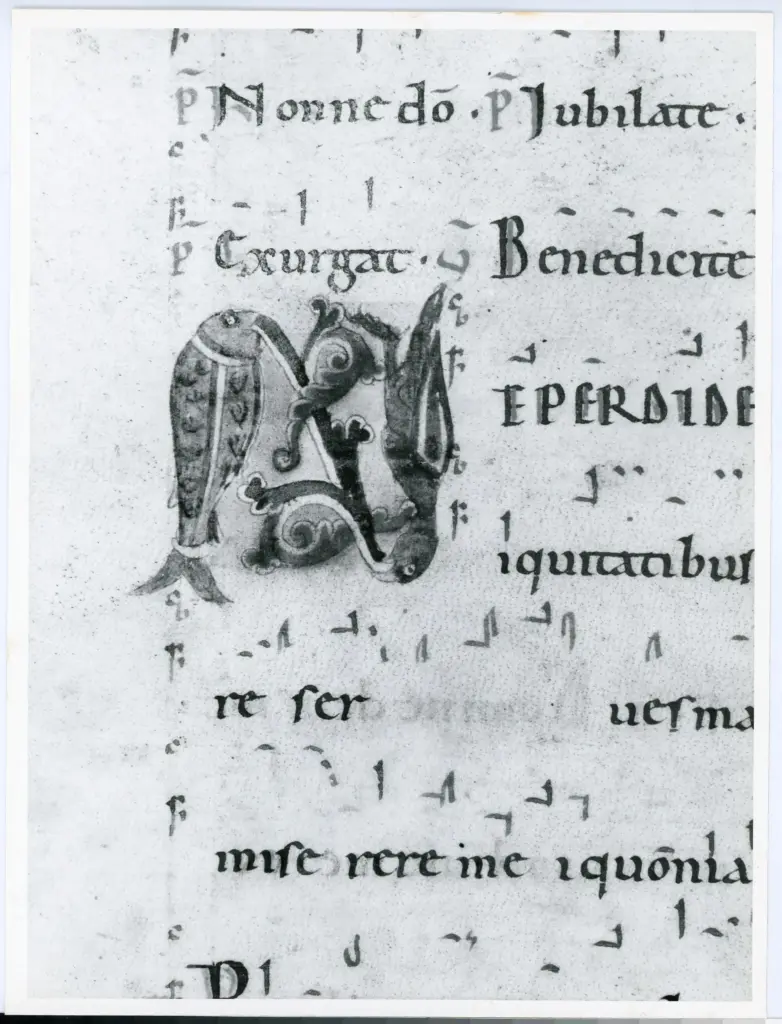 p̄ Nonne dō . p̄ Jubilate .
p̄ Exurgat . Benedicite
NE PERDIDE
iquitatibus
re ser uesma
mise rere me iquōnia